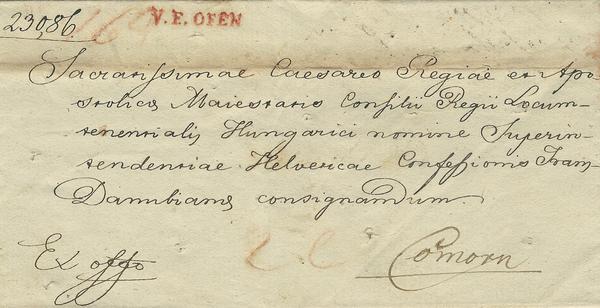 23086. V. E. OFEN
Sacratissimae Caesareo Regiae et Apo-
stolicæ Maiestatis Consilii Regii Locum-
tenentialis Hungarici nomine Superin-
tendentiae Helveticae Confessionis Trans-
Danubianæ consignandum.
Ex offo
Comorn